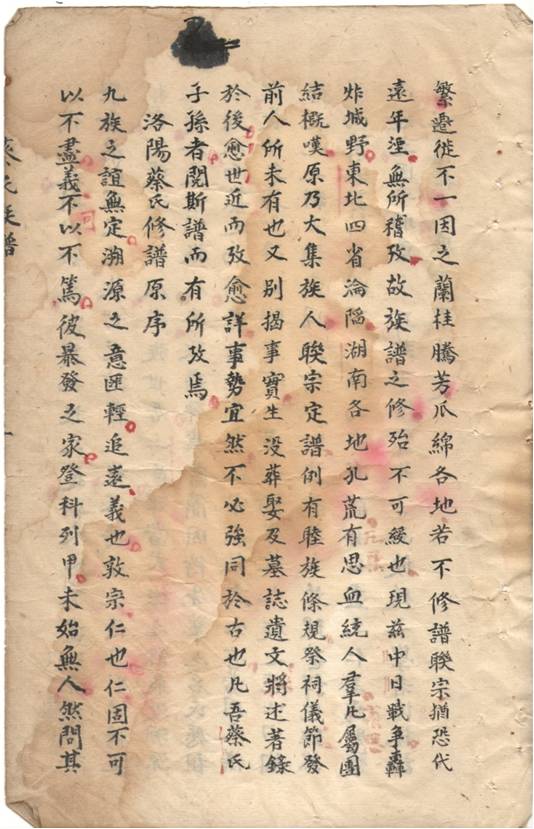 繁遷徙不一因之蘭桂騰芳瓜綿各地若不修譜聯宗猶恐代
遠年湮無所稽攷故族譜之修殆不可緩也現茲中日戰爭轟
炸城野東北四省淪陷湖南各地孔荒有思血統人羣凡屬團
結概嘆原乃大集族人聯宗定譜例有睦族條規祭祠儀節發
前人所未有也又別揭事實生没葬娶及墓誌遺文將述著錄
於後愈世近而攷愈詳事勢宜然不必強同於古也凡吾蔡氏
子孫者閱斯譜而有所攷焉
洛陽蔡氏修譜原序
九族之誼無定溯源之意匪輕追遠義也敦宗仁也仁固不可
以不盡義不以不篤彼暴發之家登科列甲未始無人然問其
蔡氏族譜